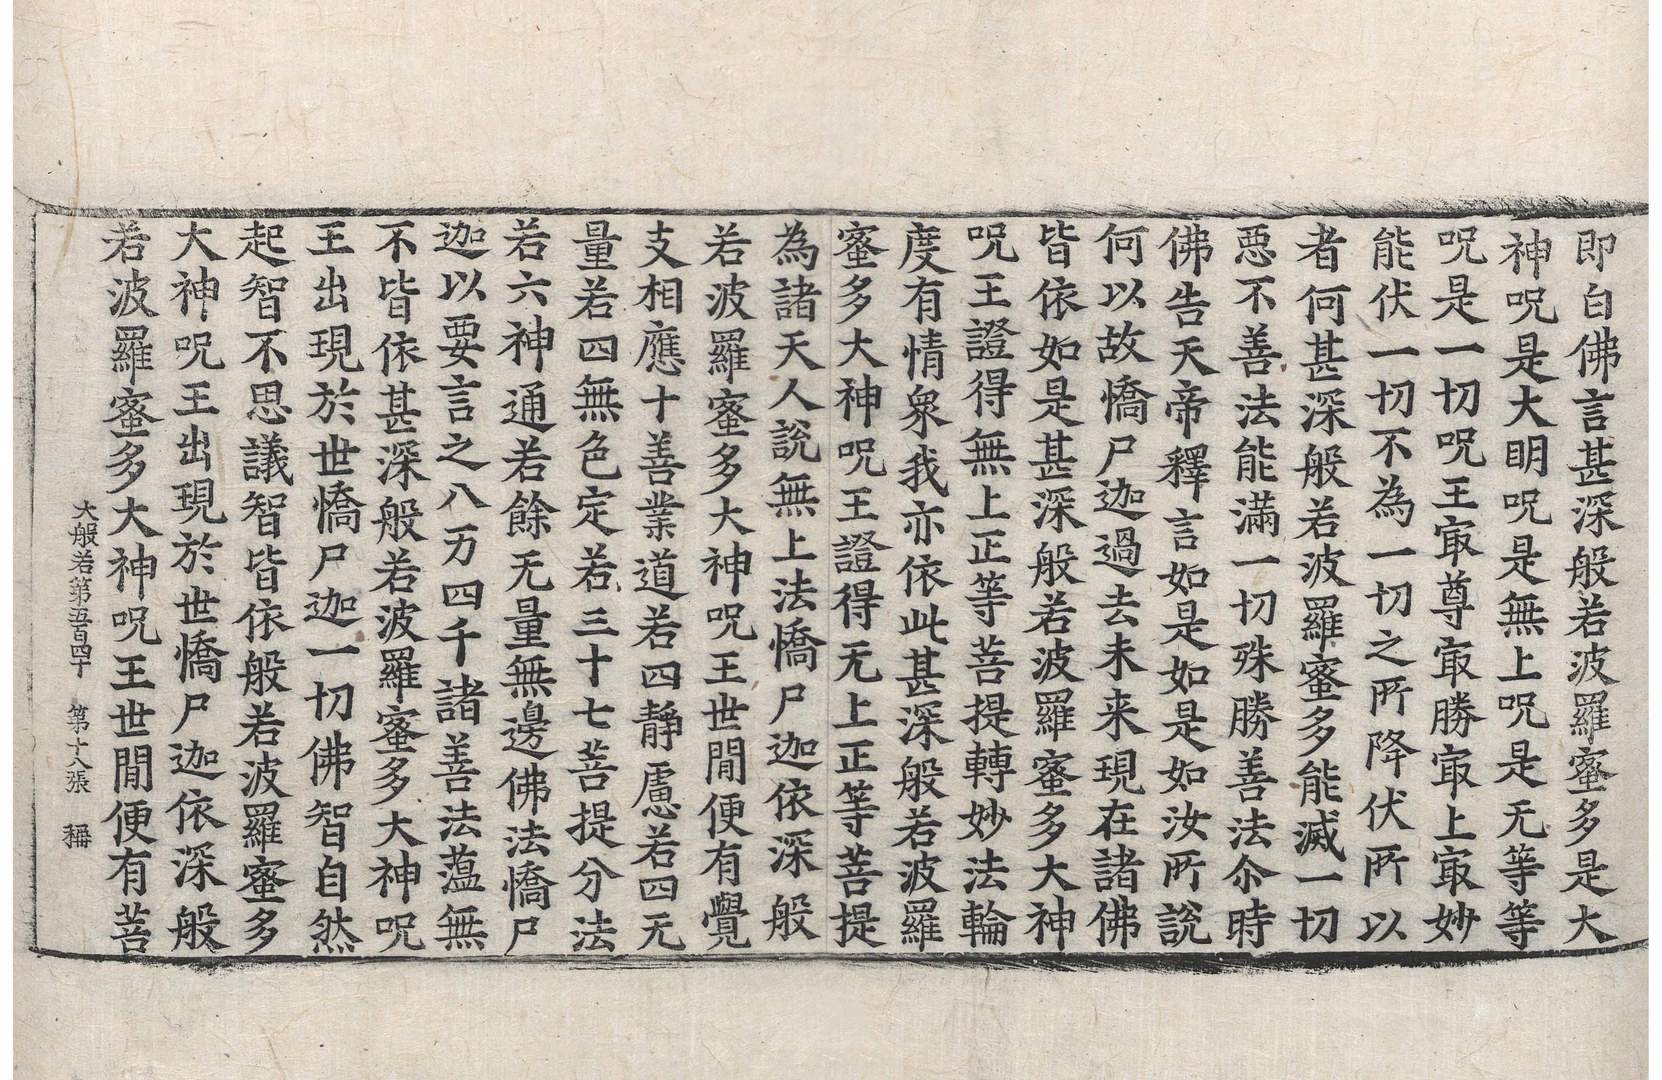 即白佛言甚深般若波羅蜜多是大
神呪是大明呪是無上呪是无等等
呪是一切呪王㝡尊㝡勝㝡上㝡妙
能伏一切不為一切之所降伏所以
者何甚深般若波羅蜜多能滅一切
惡不善法能滿一切殊勝善法尒時
佛告天帝釋言如是如是如汝所說
何以故憍尸迦過去未来現在諸佛
皆依如是甚深般若波羅蜜多大神
呪王證得無上正等菩提轉妙法輪
度有情衆我亦依此甚深般若波羅
蜜多大神呪王證得无上正等菩提
為諸天人說無上法憍尸迦依深般
若波羅蜜多大神呪王世間便有覺
支相應十善業道若四靜慮若四无
量若四無色定若三十七菩提分法
若六神通若餘无量無邊佛法憍尸
迦以要言之八万四千諸善法蘊無
不皆依甚深般若波羅蜜多大神呪
王出現於世憍尸迦一切佛智自然
起智不思議智皆依般若波羅蜜多
大神呪王出現於世憍尸迦依深般
若波羅蜜多大神呪王世間便有菩
大般若第五百四十 第十八張 稱